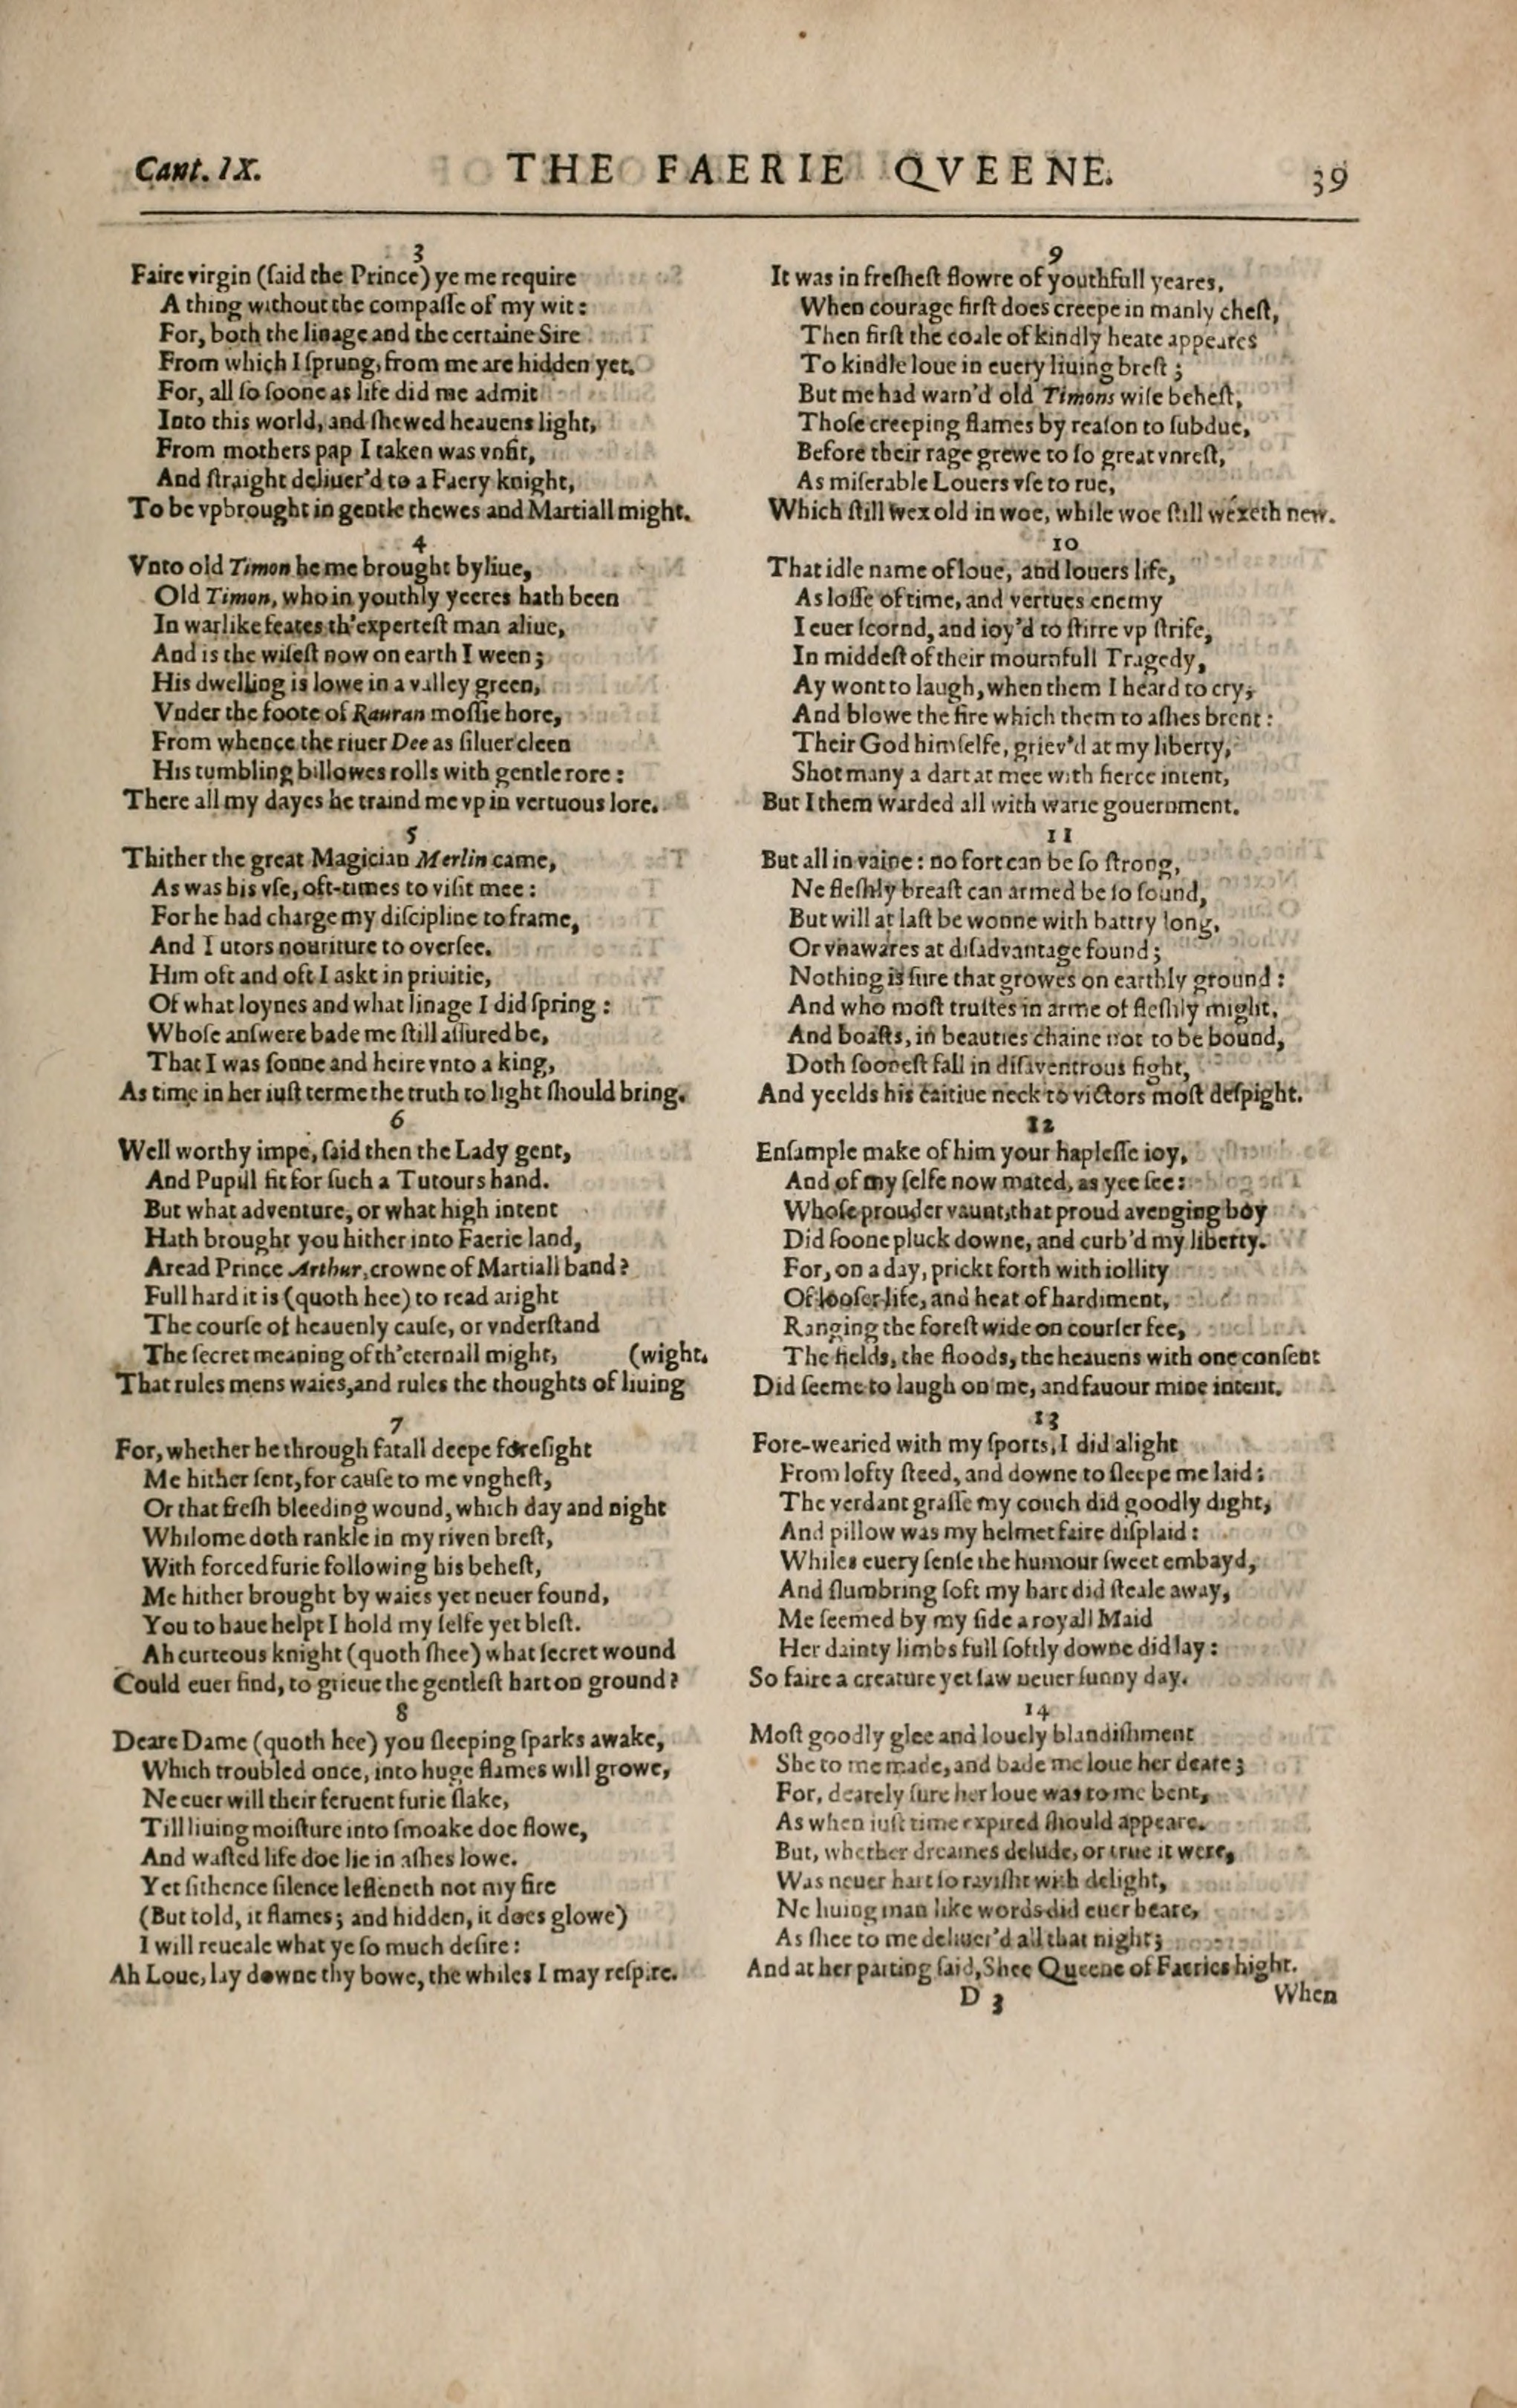 Cant. IX.
THE FAERIE QVEENE.
39
3
Faire virgin (ſaid the Prince) ye me require
A thing without the compaſſe of my wit:
For, both the linage and the certaine Sire
From which I ſprung, from me are hidden yet.
For, all ſo ſoone as life did me admit
Into this world, and ſhewed heauens light,
From mothers pap I taken was vnfit,
And ſtraight deliuer'd to a Faery knight,
To be vpbrought in gentle thewes and Martiall might.
4
Vnto old Timon he me brought byliue,
Old Timon, who in youthly yeeres hath been
In warlike feates th'experteſt man aliue,
And is the wiſeſt now on earth I ween;
His dwelling is lowe in a valley green,
Vnder the foote of Rauran moſſie hore,
From whence the riuer Dee as ſiluer cleen
His tumbling billowes rolls with gentle rore:
There all my dayes he traind me vp in vertuous lore.
5
Thither the great Magician Merlin came,
As was his vſe, oft-times to viſit mee:
For he had charge my diſcipline to frame,
And Tutors nouriture to overſee.
Him oft and oft I askt in priuitie,
Of what loynes and what linage I did ſpring:
Whoſe anſwere bade me ſtill aſſured be,
That I was ſonne and heire vnto a king,
As time in her iuſt terme the truth to light ſhould bring.
6
Well worthy impe, ſaid then the Lady gent,
And Pupill fit for ſuch a Tutours hand.
But what adventure, or what high intent
Hath brought you hither into Faerie land,
Aread Prince Arthur, crowne of Martiall band?
Full hard it is (quoth hee) to read aright
The courſe of heauenly cauſe, or vnderſtand
The ſecret meaning of th'eternall might, (wight.
That rules mens waies, and rules the thoughts of liuing
7
For, whether he through fatall deepe foreſight
Me hither ſent, for cauſe to me vngheſt,
Or that freſh bleeding wound, which day and night
Whilome doth rankle in my riven breſt,
With forced furie following his beheſt,
Me hither brought by waies yet neuer found,
You to haue helpt I hold my ſelfe yet bleſt.
Ah curteous knight (quoth ſhee) what ſecret wound
Could euer find, to grieue the gentleſt hart on ground?
8
Deare Dame (quoth hee) you ſleeping ſparks awake,
Which troubled once, into huge flames will growe,
Ne euer will their feruent furie ſlake,
Till liuing moiſture into ſmoake doe flowe,
And waſted life doe lie in aſhes lowe.
Yet ſithence ſilence leſſeneth not my fire
(But told, it flames; and hidden, it does glowe)
I will reueale what ye ſo much deſire:
Ah Loue, lay downe thy bowe, the whiles I may reſpire.
9
It was in freſheſt flowre of youthfull yeares,
When courage firſt does creepe in manly cheſt,
Then firſt the coale of kindly heate appeares
To kindle loue in euery liuing breſt;
But me had warn'd old Timons wiſe beheſt,
Thoſe creeping flames by reaſon to ſubdue,
Before their rage grewe to ſo great vnreſt,
As miſerable Louers vſe to rue,
Which ſtill wex old in woe, while woe ſtill wexeth new.
10
That idle name of loue, and louers life,
As loſſe of time, and vertues enemy
I euer ſcornd, and ioy'd to ſtirre vp ſtrife,
In middeſt of their mournfull Tragedy,
Ay wont to laugh, when them I heard to cry,
And blowe the fire which them to aſhes brent:
Their God himſelfe, griev'd at my liberty,
Shot many a dart at mee with fierce intent,
But I them warded all with warie gouernment.
11
But all in vaine: no fort can be ſo ſtrong,
Ne fleſhly breaſt can armed be ſo ſound,
But will at laſt be wonne with battry long,
Or vnawares at diſadvantage found;
Nothing is ſure that growes on earthly ground:
And who moſt truſtes in arme of fleſhly might,
And boaſts, in beauties chaine not to be bound,
Doth ſooneſt fall in diſaventrous fight,
And yeelds his caitiue neck to victors moſt deſpight.
12
Enſample make of him your hapleſſe ioy,
And of my ſelfe now mated, as yee ſee:
Whoſe prouder vaunt, that proud avenging boy
Did ſoone pluck downe, and curb'd my liberty.
For, on a day, prickt forth with iollity
Of looſer life, and heat of hardiment,
Ranging the foreſt wide on courſer fee,
The fields, the floods, the heauens with one conſent
Did ſeeme to laugh on me, and fauour mine intent.
13
Fore-wearied with my ſports, I did alight
From lofty ſteed, and downe to ſleepe me laid;
The verdant graſſe my couch did goodly dight,
And pillow was my helmet faire diſplaid:
Whiles euery ſenſe the humour ſweet embayd,
And ſlumbring ſoft my hart did ſteale away,
Me ſeemed by my ſide a royall Maid
Her dainty limbs full ſoftly downe did lay:
So faire a creature yet ſaw neuer ſunny day.
14
Moſt goodly glee and louely blandiſhment
She to me made, and bade me loue her deare;
For, dearely ſure her loue was to me bent,
As when iuſt time expired ſhould appeare.
But, whether dreames delude, or true it were,
Was neuer hart ſo raviſht with delight,
Ne liuing man like words did euer heare,
As ſhee to me deliuer'd all that night;
And at her parting ſaid, Shee Queene of Faeries hight.
D 3
When